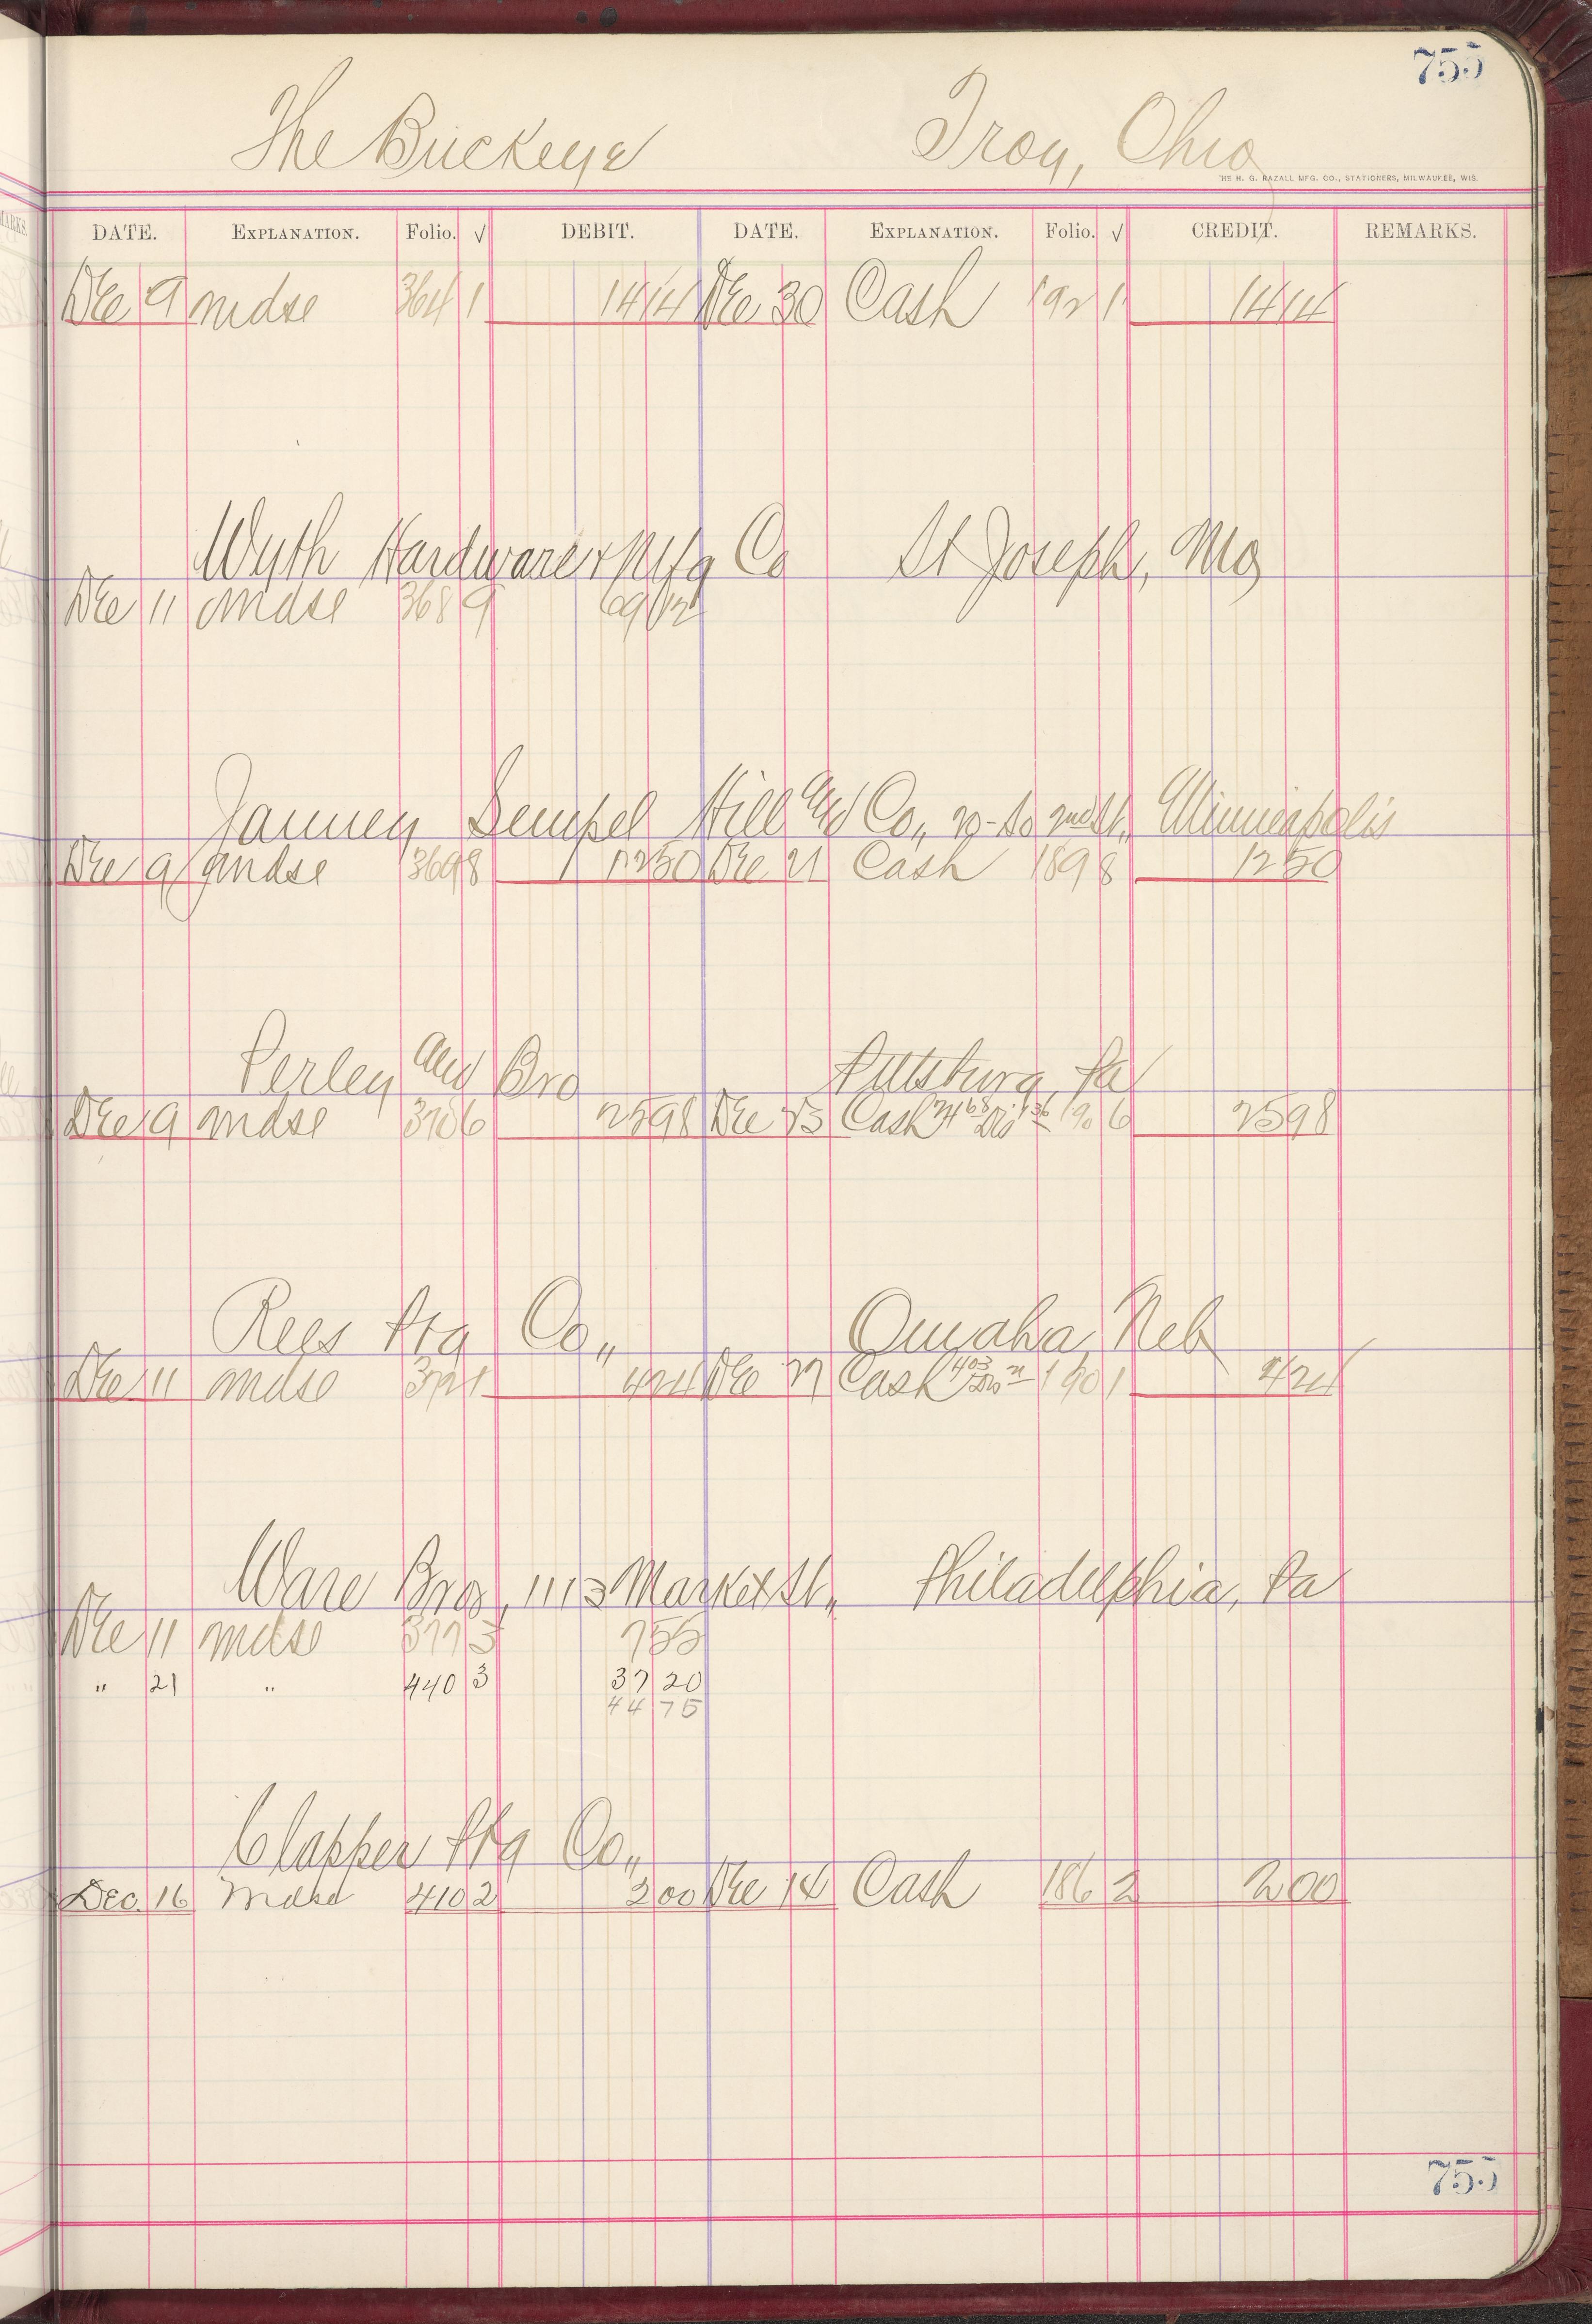 755
The Buckeye Troy, Ohio
THE H. G. RAZALL MFG. CO., STATIONERS, MILWAUKEE, WIS.
DATE. EXPLANATION. Folio. √ DEBIT. DATE. EXPLANATION. Folio. √ CREDIT. REMARKS.
Dec 9 mdse 364 1 14 14 Dec 30 Cash 192 1 14 14
Wyth Hardware & Mfg Co St Joseph, Mo
Dec 11 mdse 368 9 69 12
Janney Sempel Hill and Co,, Minneapolis
Dec 9 mdse 369 8 12 50 Dec 21 Cash 189 8 12 50
Perley and Bro Pittsburg, Pa
Dec 9 mdse 370 6 25 98 Dec 23 Cash 24 68 Dis 1 30 190 6 25 98
Rees Ptg Co,, Omaha, Neb
Dec 11 mdse 372 1 4 24 Dec 27 Cash 4 03 Dis 21 190 1 4 24
Ware Bros, 1113 Market St,, Philadelphia, Pa
Dec 11 mdse 377 3 7 55
" 21 " 440 3 37 20
44 75
Clapper Ptg Co,,
Dec. 16 Mdse 410 2 2 00 Dec 14 Cash 186 2 2 00
755